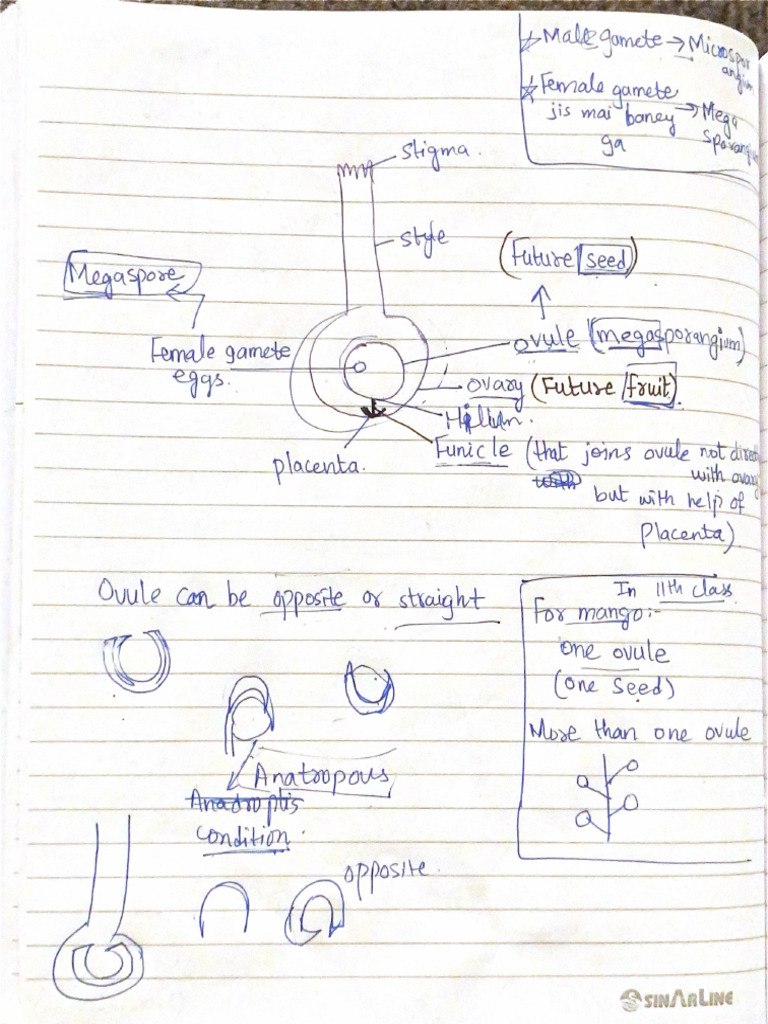 Male gamete → Microspor
angium
Female gamete
jis mai baney → Mega
ga sporangium
Stigma.
Style
(Future seed)
Megaspore
Female gamete
eggs.
ovule (megasporangium)
ovary (Future fruit).
Hilum.
Funicle (that joins ovule not direct
with ovary
but with help of
Placenta)
placenta.
Ovule can be opposite or straight
In 11th class
For mango:-
one ovule
(one seed)
More than one ovule
Anatropous
Anadroptis
condition.
opposite.
SINARLINE